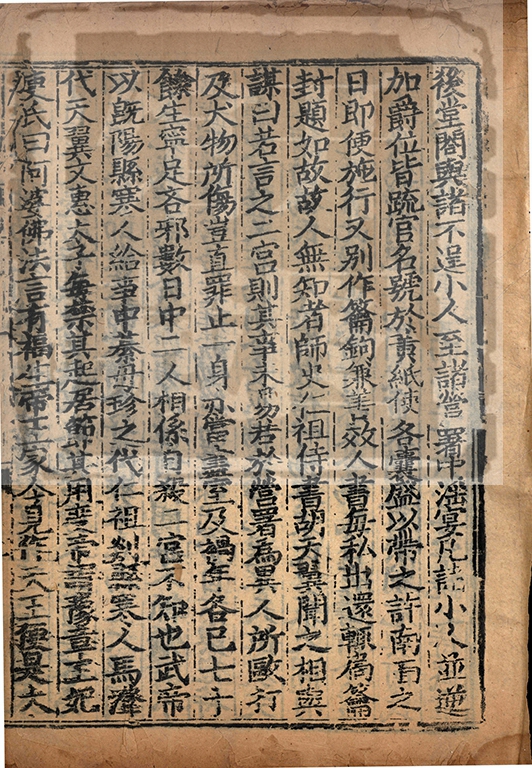 後堂閣與諸不逞小人至諸營署中淫宴凡諸小人並逆
加爵位皆疏官名號於黃紙使各囊盛以帶之許南面之
日即便施行又別作籥鉤兼善效人書每私出還輒扃籥
封題如故故人無知者師史仁祖侍書胡天翼聞之相與
謀曰若言之二宮則其事未易若於營署為異人所毆打
及犬物所傷豈直罪止一身亦當盡室及禍年各已七十
餘生寧足吝邪數日中二人相係自殺二宮不知也武帝
以既陽縣寒人給事中綦毋珍之代仁祖剡縣寒人馬澄
代天翼文惠太子每禁其起居節其用度帝謂豫章王妃
庾氏曰阿婆佛法言有福生帝王家今見作天王便是大